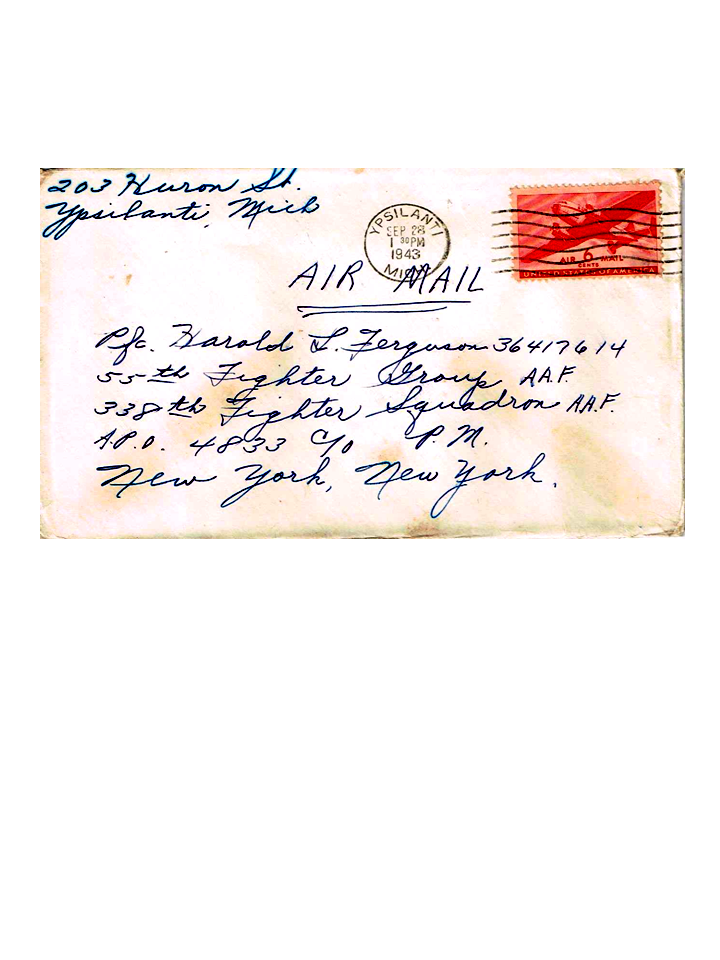 203 Huron St.
Ypsilanti, Mich
YPSILANTI
SEP 28
1 30 PM
1943
MICH
AIR 6 MAIL
CENTS
UNITED STATES OF AMERICA
AIR MAIL
Pfc. Harold L. Ferguson 36417614
55th Fighter Group A.A.F.
338th Fighter Squadron A.A.F.
A.P.O. 4833 c/o P.M.
New York, New York.